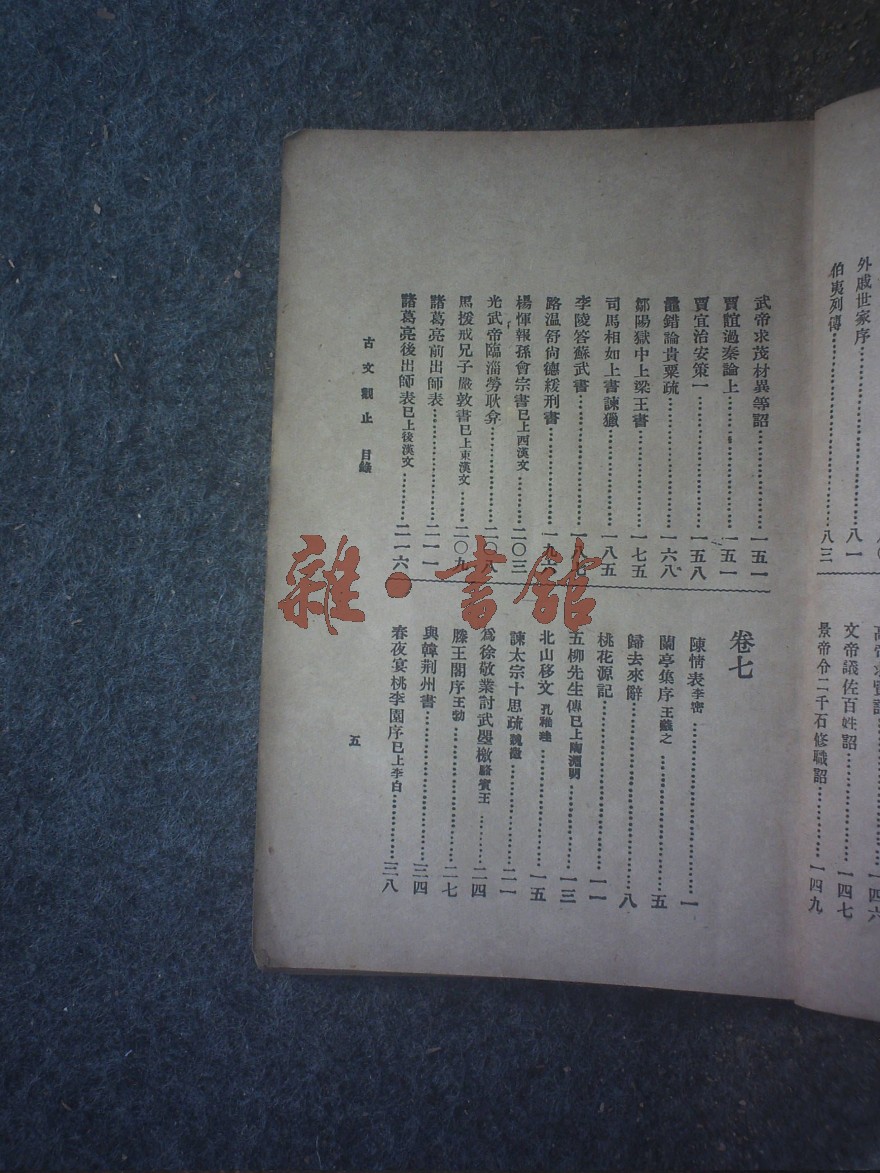 外戚世家序……八一
伯夷列傳……八三
文帝議佐百姓詔……一四七
景帝令二千石修職詔……一四九
武帝求茂材異等詔……一五一
賈誼過秦論上……一五一
賈誼治安策一……一五八
鼂錯論貴粟疏……一六八
鄒陽獄中上梁王書……一七五
司馬相如上書諫獵……一八五
李陵答蘇武書……一八七
路温舒尙德緩刑書
楊惲報孫會宗書已上西漢文……二〇三
光武帝臨淄勞耿弇……二〇八
馬援戒兄子嚴敦書已上東漢文……二〇九
諸葛亮前出師表……二一一
諸葛亮後出師表已上後漢文……二一六
卷七
陳情表李密……一
蘭亭集序王羲之……五
歸去來辭……八
桃花源記……一一
五柳先生傳已上陶淵明……一三
北山移文孔稚珪……一五
諫太宗十思疏魏徵……二一
爲徐敬業討武曌檄駱賓王……二四
滕王閣序王勃……二七
與韓荆州書……三四
春夜宴桃李園序已上李白……三八
古文觀止 目錄
五
雜·書館